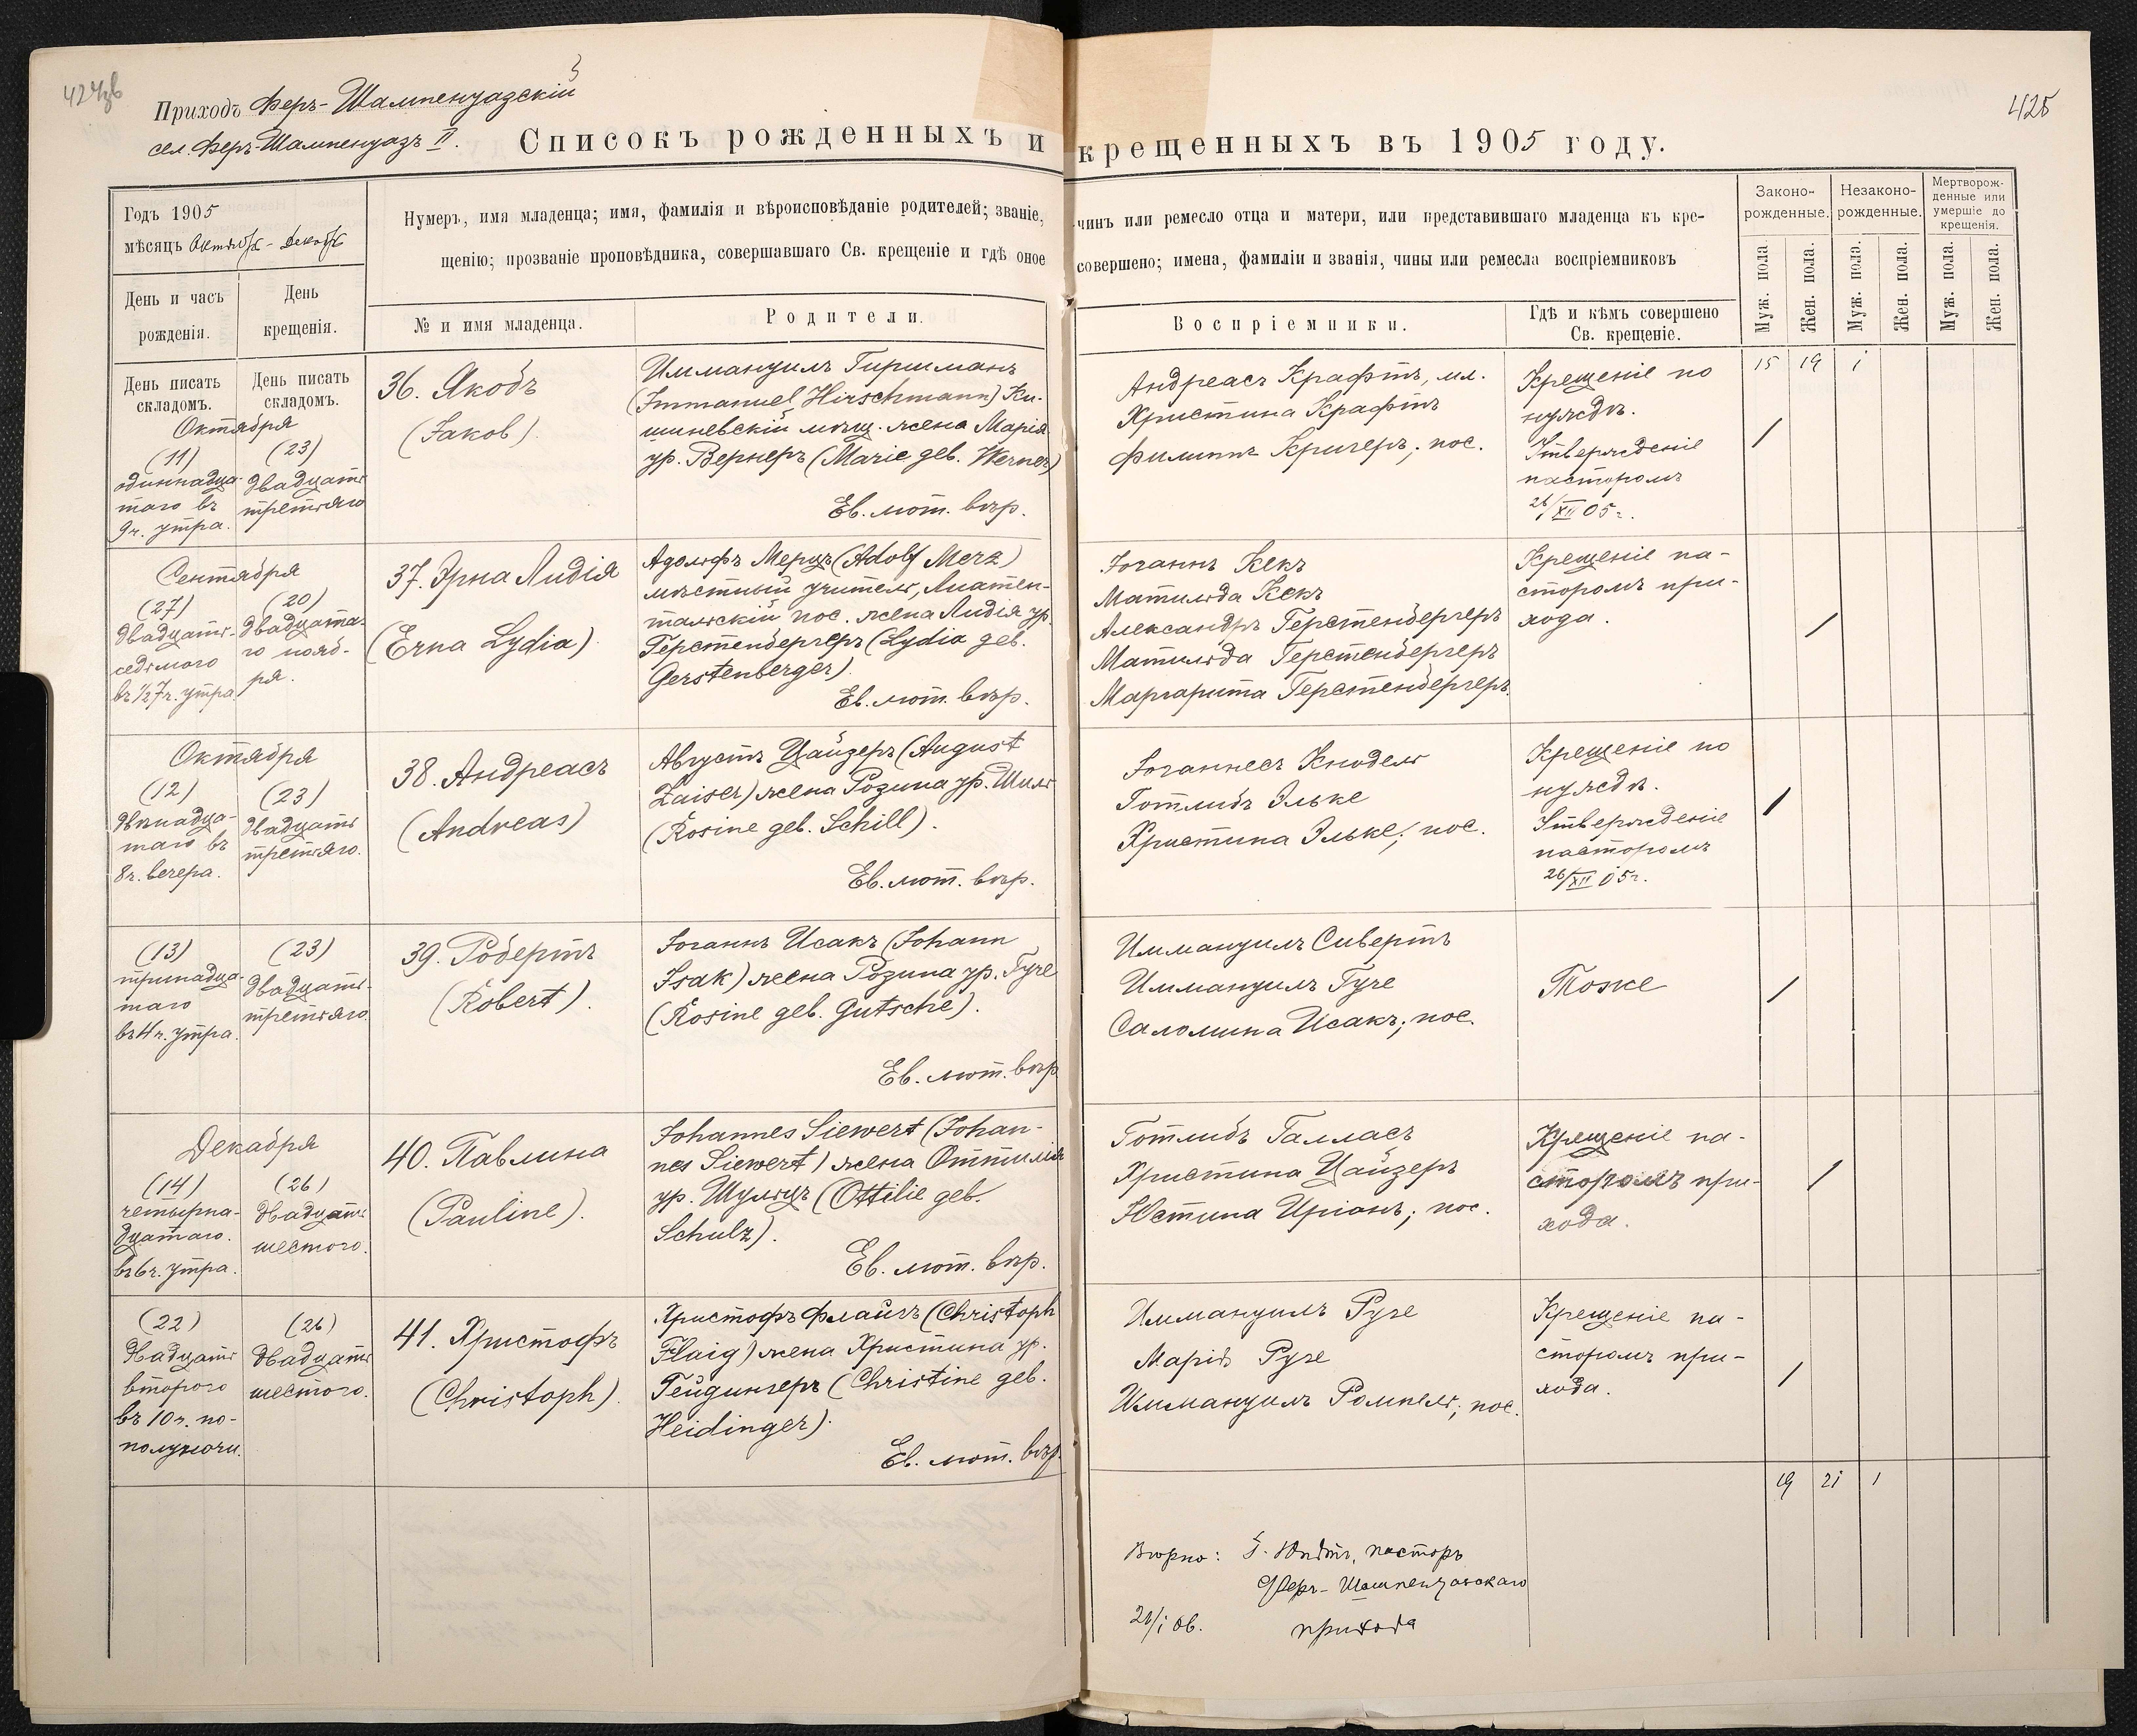 425
Приходъ Феръ-Шампенуазскій
сел. Феръ-Шампенуазъ II.
Списокъ рожденныхъ и крещенныхъ въ 1905 году.
Годъ 1905
мѣсяцъ Октябрь - Декабрь
День и часъ рожденія.
День крещенія.
Нумеръ, имя младенца; имя, фамилія и вѣроисповѣданіе родителей; званіе, чинъ или ремесло отца и матери, или представившаго младенца къ кре-
щенію; прозваніе проповѣдника, совершавшаго Св. крещеніе и гдѣ оное совершено; имена, фамиліи и званія, чины или ремесла воспріемниковъ
№ и имя младенца.
Родители.
Воспріемники.
Гдѣ и кѣмъ совершено
Св. крещеніе.
Законо-
рожденные.
Незаконо-
рожденные.
Мертворож-
денные или
умершіе до
крещенія.
Муж. пола
Жен. пола.
Муж. пола.
Жен. пола.
Муж. пола.
Жен. пола.
День писать
складомъ.
День писать
складомъ.
Октября
(11)
одиннадца-
таго въ
9ч. утра.
(23)
двадцать
третьяго
36. Якобъ
(Jakob).
Иммануилъ Гиршманъ
(Immanuel Hirschmann) Ки-
шиневскій мѣщ. жена Марія
ур. Вернеръ (Marie geb. Werner)
Ев. лют. вѣр.
Андреасъ Крафтъ, мл.
Христина Крафтъ
Филиппъ Кригеръ; пос.
Крещеніе по
нуждѣ.
Утвержденіе
пасторомъ
26/XII 05г.
15 19 1
/
Сентября
(27)
двадцать-
седьмого
въ ½7ч. утра
(20)
двадцата-
го нояб-
ря.
37. Эрна Лидія
(Erna Lydia)
Адольфъ Мерцъ (Adolf Merz)
мѣстный учитель, Лихтен-
тальскій пос. жена Лидія ур.
Герстенбергеръ (Lydia geb.
Gerstenberger)
Ев. лют. вѣр.
Іоганнъ Кекъ
Матильда Кекъ
Александръ Герстенбергеръ
Матильда Герстенбергеръ
Маргарита Герстенбергеръ.
Крещеніе па-
сторомъ при-
хода.
/
Октября
(12)
двѣнадца-
таго въ
8ч. вечера.
(23)
двадцать
третьяго.
38. Андреасъ
(Andreas)
Августъ Цайзеръ (August
Zaiser) жена Розина ур. Шиль
(Rosine geb. Schill).
Ев. лют. вѣр.
Іоганнесъ Кнодель
Готлибъ Эльке
Христина Эльке; пос.
Крещеніе по
нуждѣ.
Утвержденіе
пасторомъ
26/XII 05г.
/
(13)
тринадца-
таго
въ 4ч. утра.
(23)
двадцать-
третьяго.
39. Робертъ
(Robert).
Іоганнъ Исакъ (Johann
Isak) жена Розина ур. Гуче
(Rosine geb. Gutsche).
Ев. лют. вѣр
Иммануилъ Сивертъ
Иммануилъ Гуче
Саломина Исакъ; пос.
Тоже
/
Декабря
(14)
четырна-
дцатаго.
въ 6ч. утра.
(26)
двадцать
шестого.
40. Павлина
(Pauline).
Johannes Siewert (Johan-
nes Siewert) жена Оттилія
ур. Шульцъ (Ottilie geb.
Schulz).
Ев. лют. вѣр.
Готлибъ Галласъ
Христина Цайзеръ
Юстина Иріонъ; пос.
Крещеніе па-
сторомъ при-
хода.
/
(22)
двадцать
второго
въ 10ч. по-
полуночи.
(26)
двадцать
шестого.
41. Христофъ
(Christoph).
Христофъ Флайгъ (Christoph
Flaig) жена Христина ур.
Гейдингеръ (Christine geb.
Heidinger).
Ев. лют. вѣр.
Иммануилъ Руге
Марія Руге
Иммануилъ Ромпель; пос.
Крещеніе па-
сторомъ при-
хода.
/
19 21 1
Вѣрно: пасторъ
Феръ-Шампенуазскаго
прихода